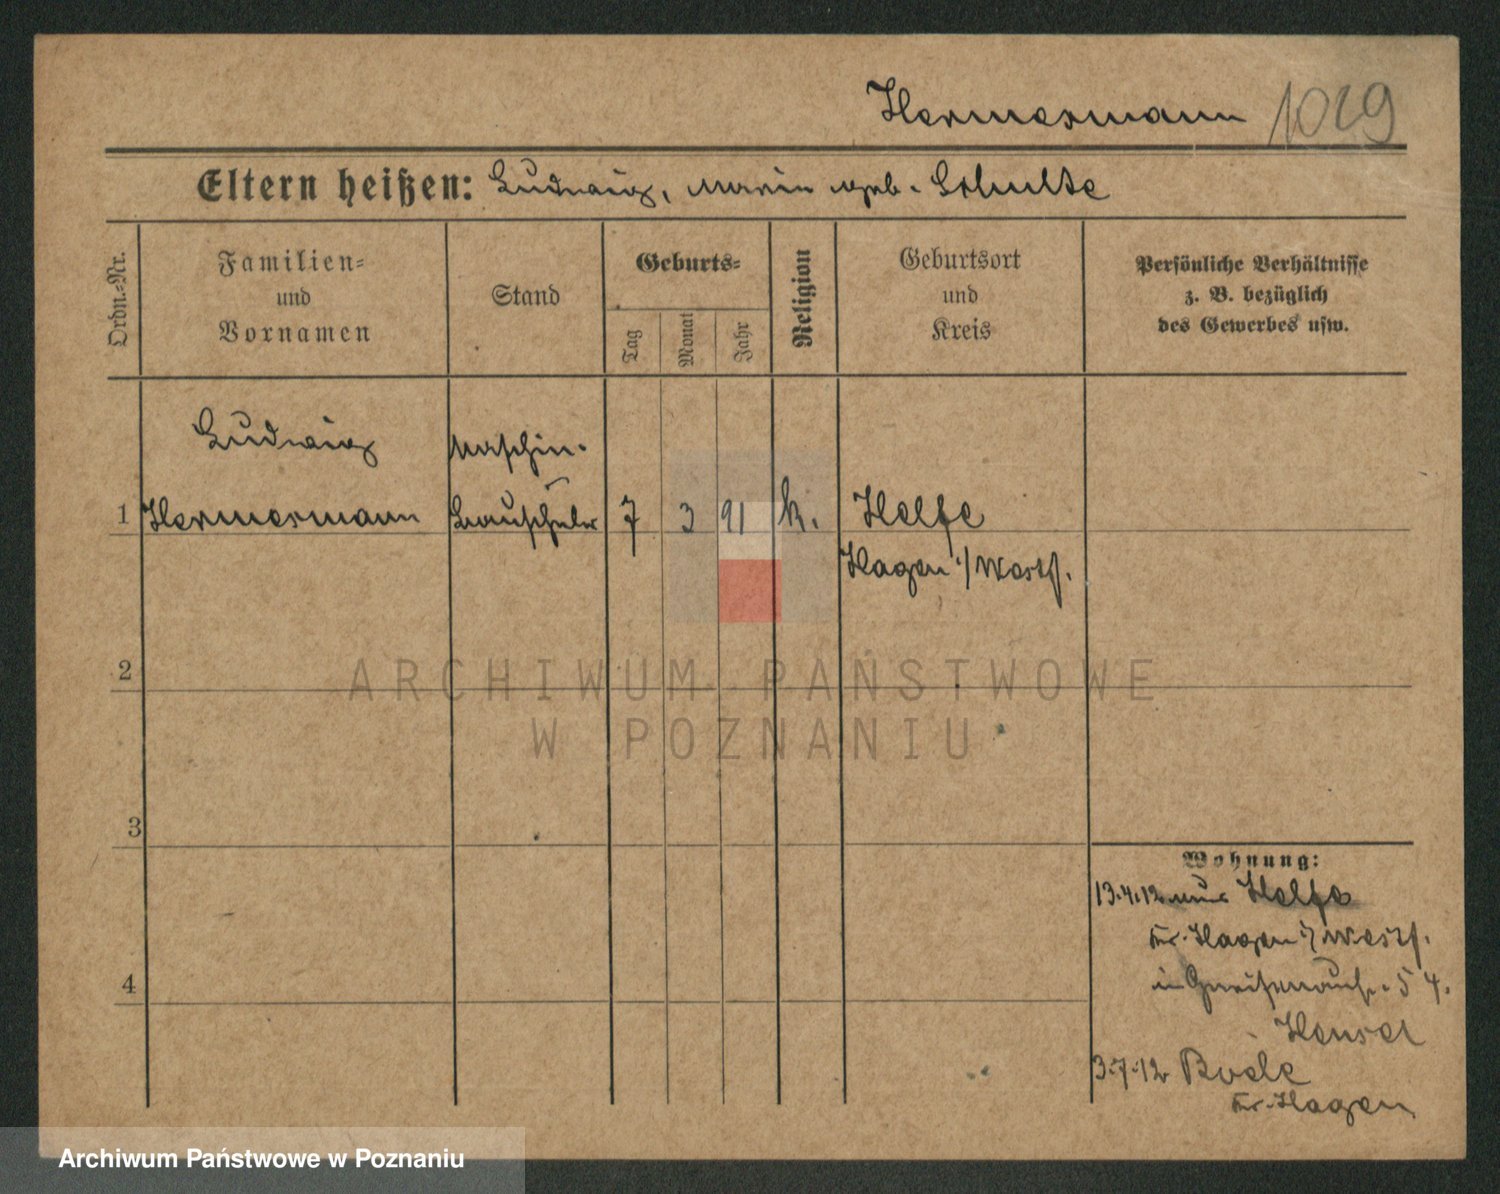 Hermesmann 1029
Eltern heißen: Ludwig, Marie geb. Schulte
Ordn.-Nr.
Familien-
und
Vornamen
Stand
Geburts-
Tag
Monat
Jahr
Religion
Geburtsort
und
Kreis
Persönliche Verhältnisse
z. B. bezüglich
des Gewerbes usw.
Ludwig Maschin-
1 Hermesmann bauschüler 7 3 91 k. Helfe
Hagen i/Westf.
2
ARCHIWUM PAŃSTWOWE
W POZNANIU
3
Wohnung:
13.4.12 aus Helfe
Kr. Hagen i/Westf.
in Gneisenaustr. 5
Hensel
3.7.12
Kr. Hagen
4
Archiwum Państwowe w Poznaniu